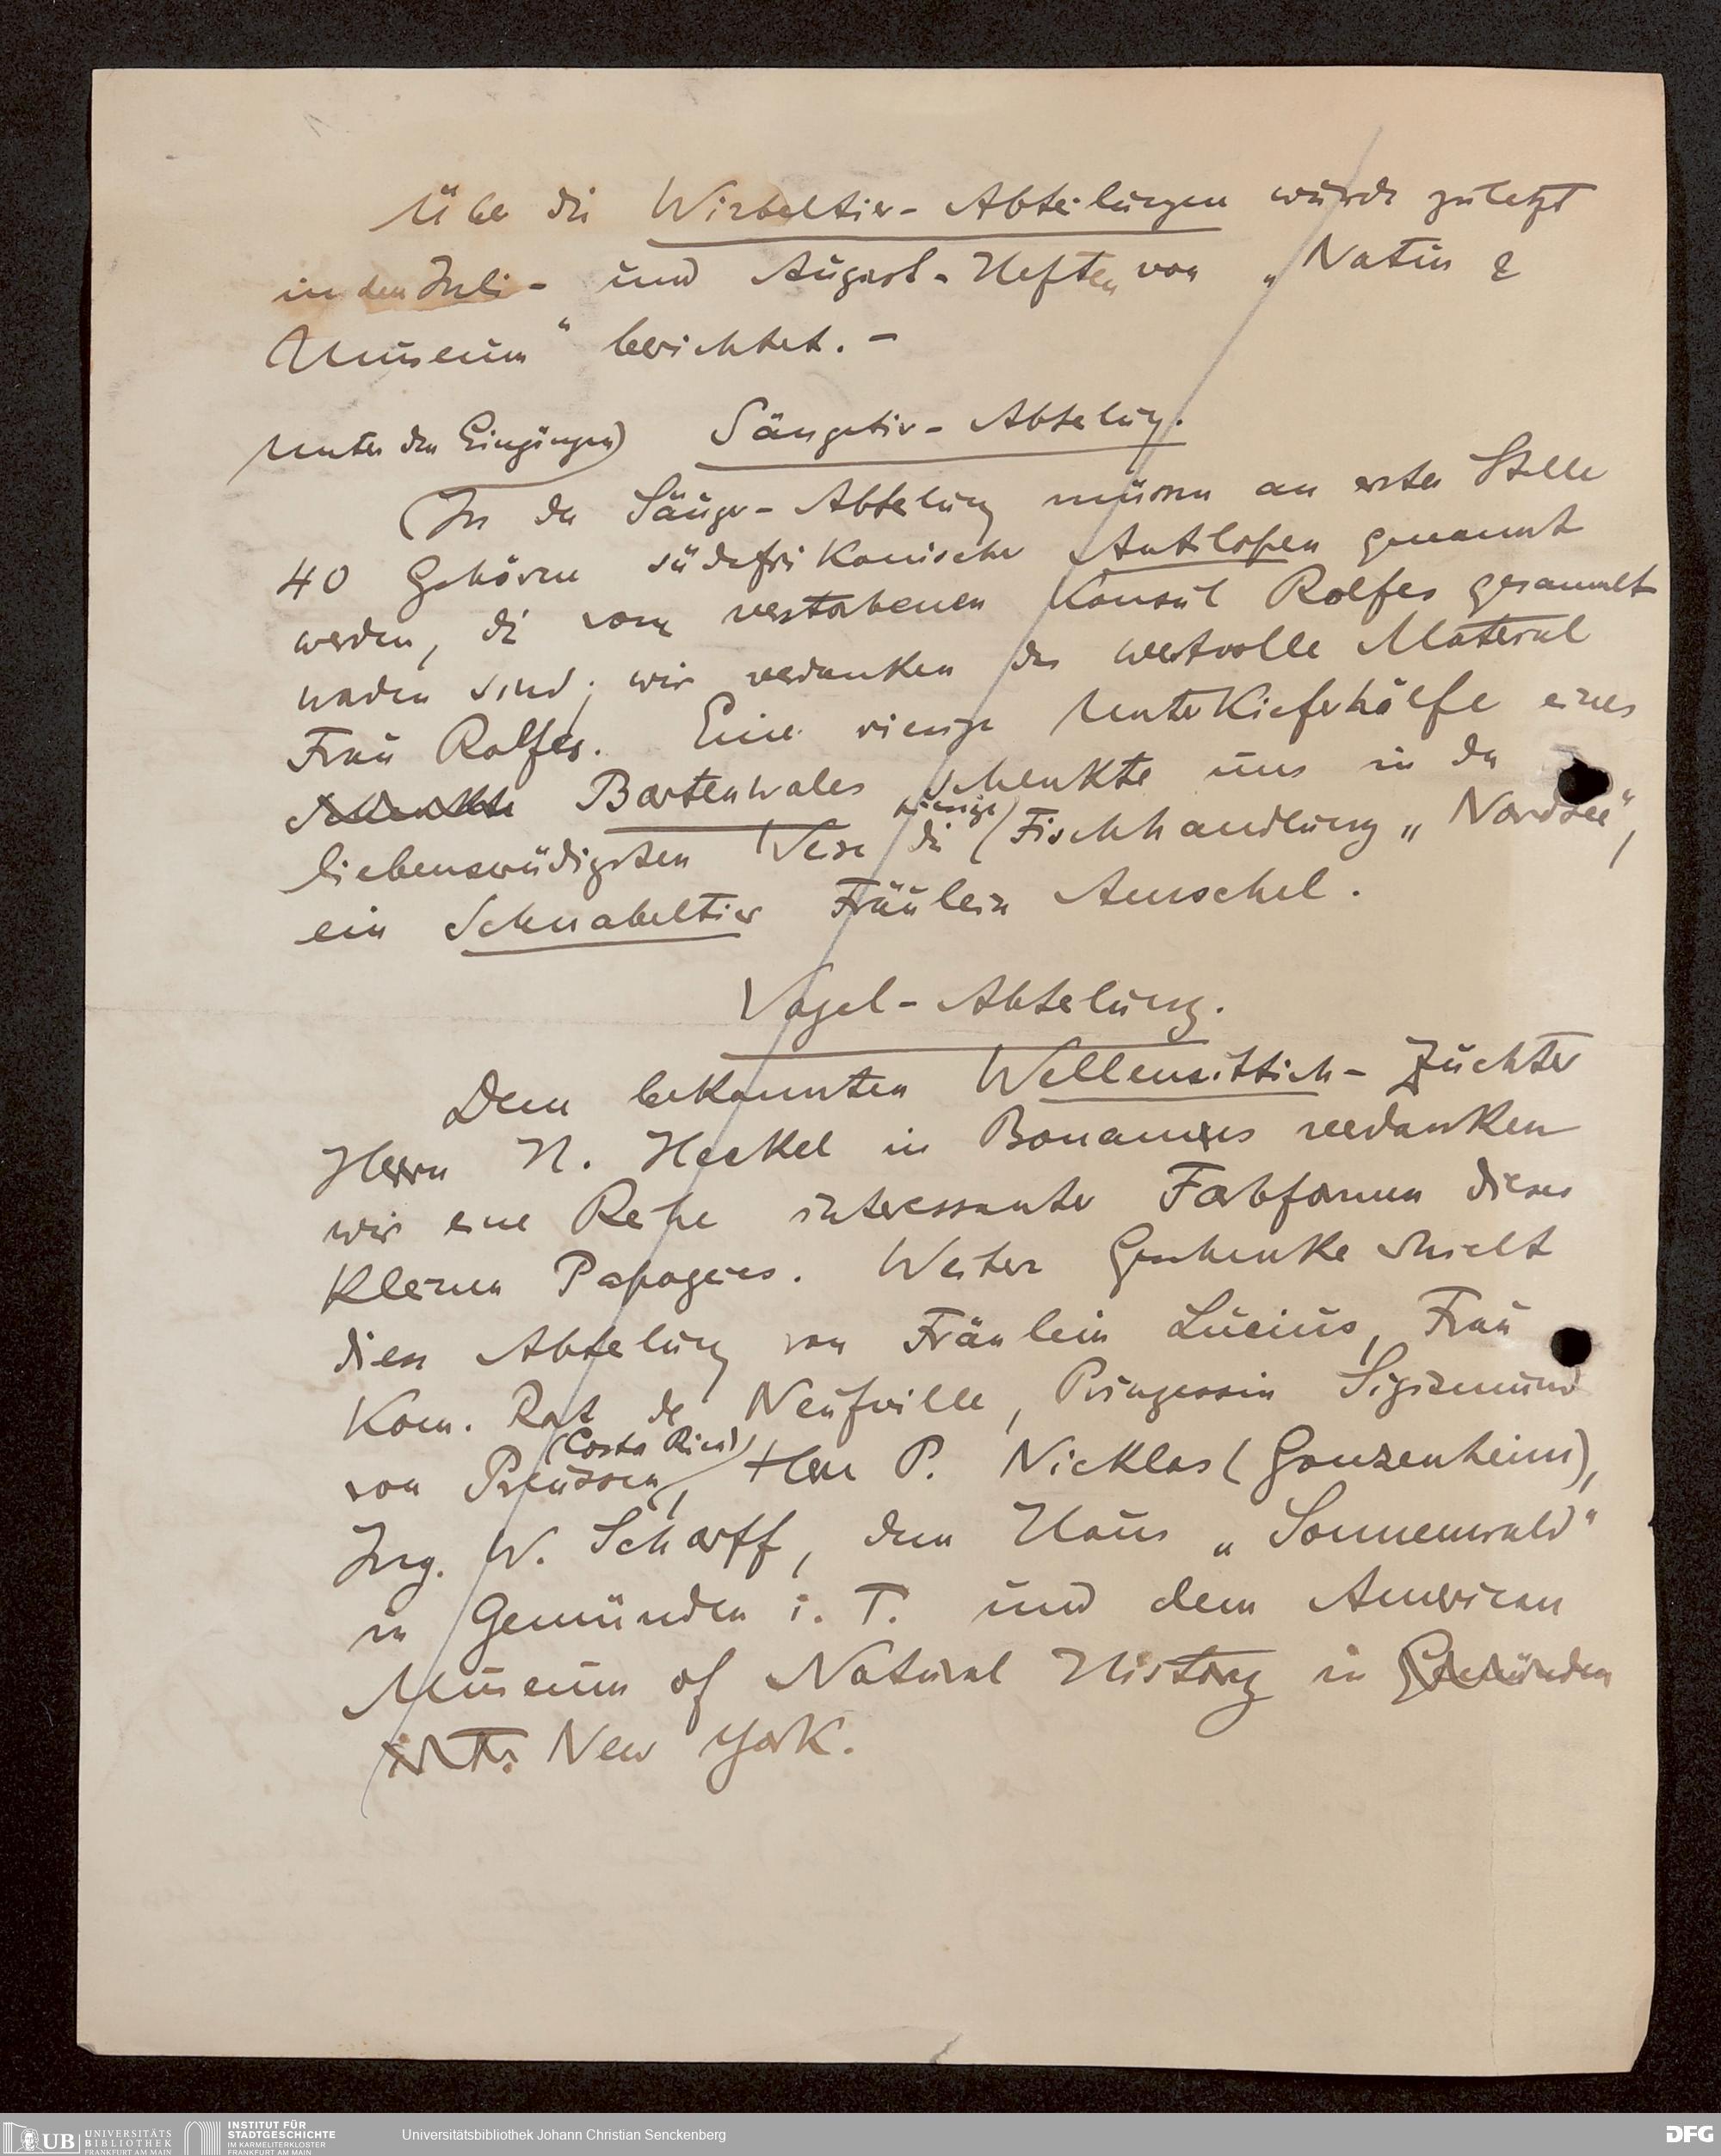 Über die Wirbeltier-Abteilungen wurde zuletzt
in den Juli- und August-Heften von „Natur &
Museum“ berichtet. –
Säugetier-Abteilung.
Unter den Eingängen)
(In der Säuger-Abteilung müssen an erster Stelle
40 Gehörne südafrikanischer Antilopen genannt
werden, die vom verstorbenen Konsul Rolfes gesammelt
worden sind; wir verdanken das wertvolle Material
Frau Rolfes. Eine riesige Unterkieferhälfte eines
schenkte Bartenwales schenkte uns in der
liebenswürdigsten Weise die hiesige (Fischhandlung „Nordsee“,
ein Schnabeltier Fräulein Amschel.
Vogel-Abteilung.
Dem bekannten Wellensittich-Züchter
Herrn N. Heckel in Bonames verdanken
wir eine Reihe interessanter Farbformen dieses
kleinen Papageies. Weitere Geschenke erhielt
diese Abteilung von Fräulein Lucius, Frau
Kom. Rat de Neufville, Prinzessin Sigismund
von Preussen (Costa Rica), Herr P. Nicklas (Gonzenheim),
Ing. W. Scharff, dem Haus „Sonnenwald“
in Gemünden i. T. und dem American
Museum of Natural History in Gemünden
i. T. New York.
UB UNIVERSITÄTS
BIBLIOTHEK
FRANKFURT AM MAIN
INSTITUT FÜR
STADTGESCHICHTE
IM KARMELITERKLOSTER
FRANKFURT AM MAIN
Universitätsbibliothek Johann Christian Senckenberg
DFG